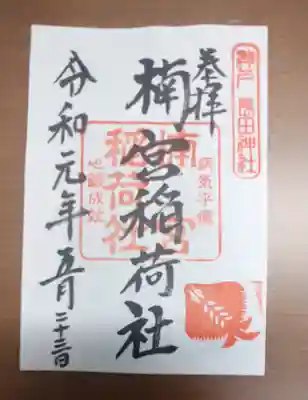 奉拝
神戸 長田神社
楠宮稲荷社
楠宮
稲荷社
病気平癒
心願成就
令和元年五月二十三日